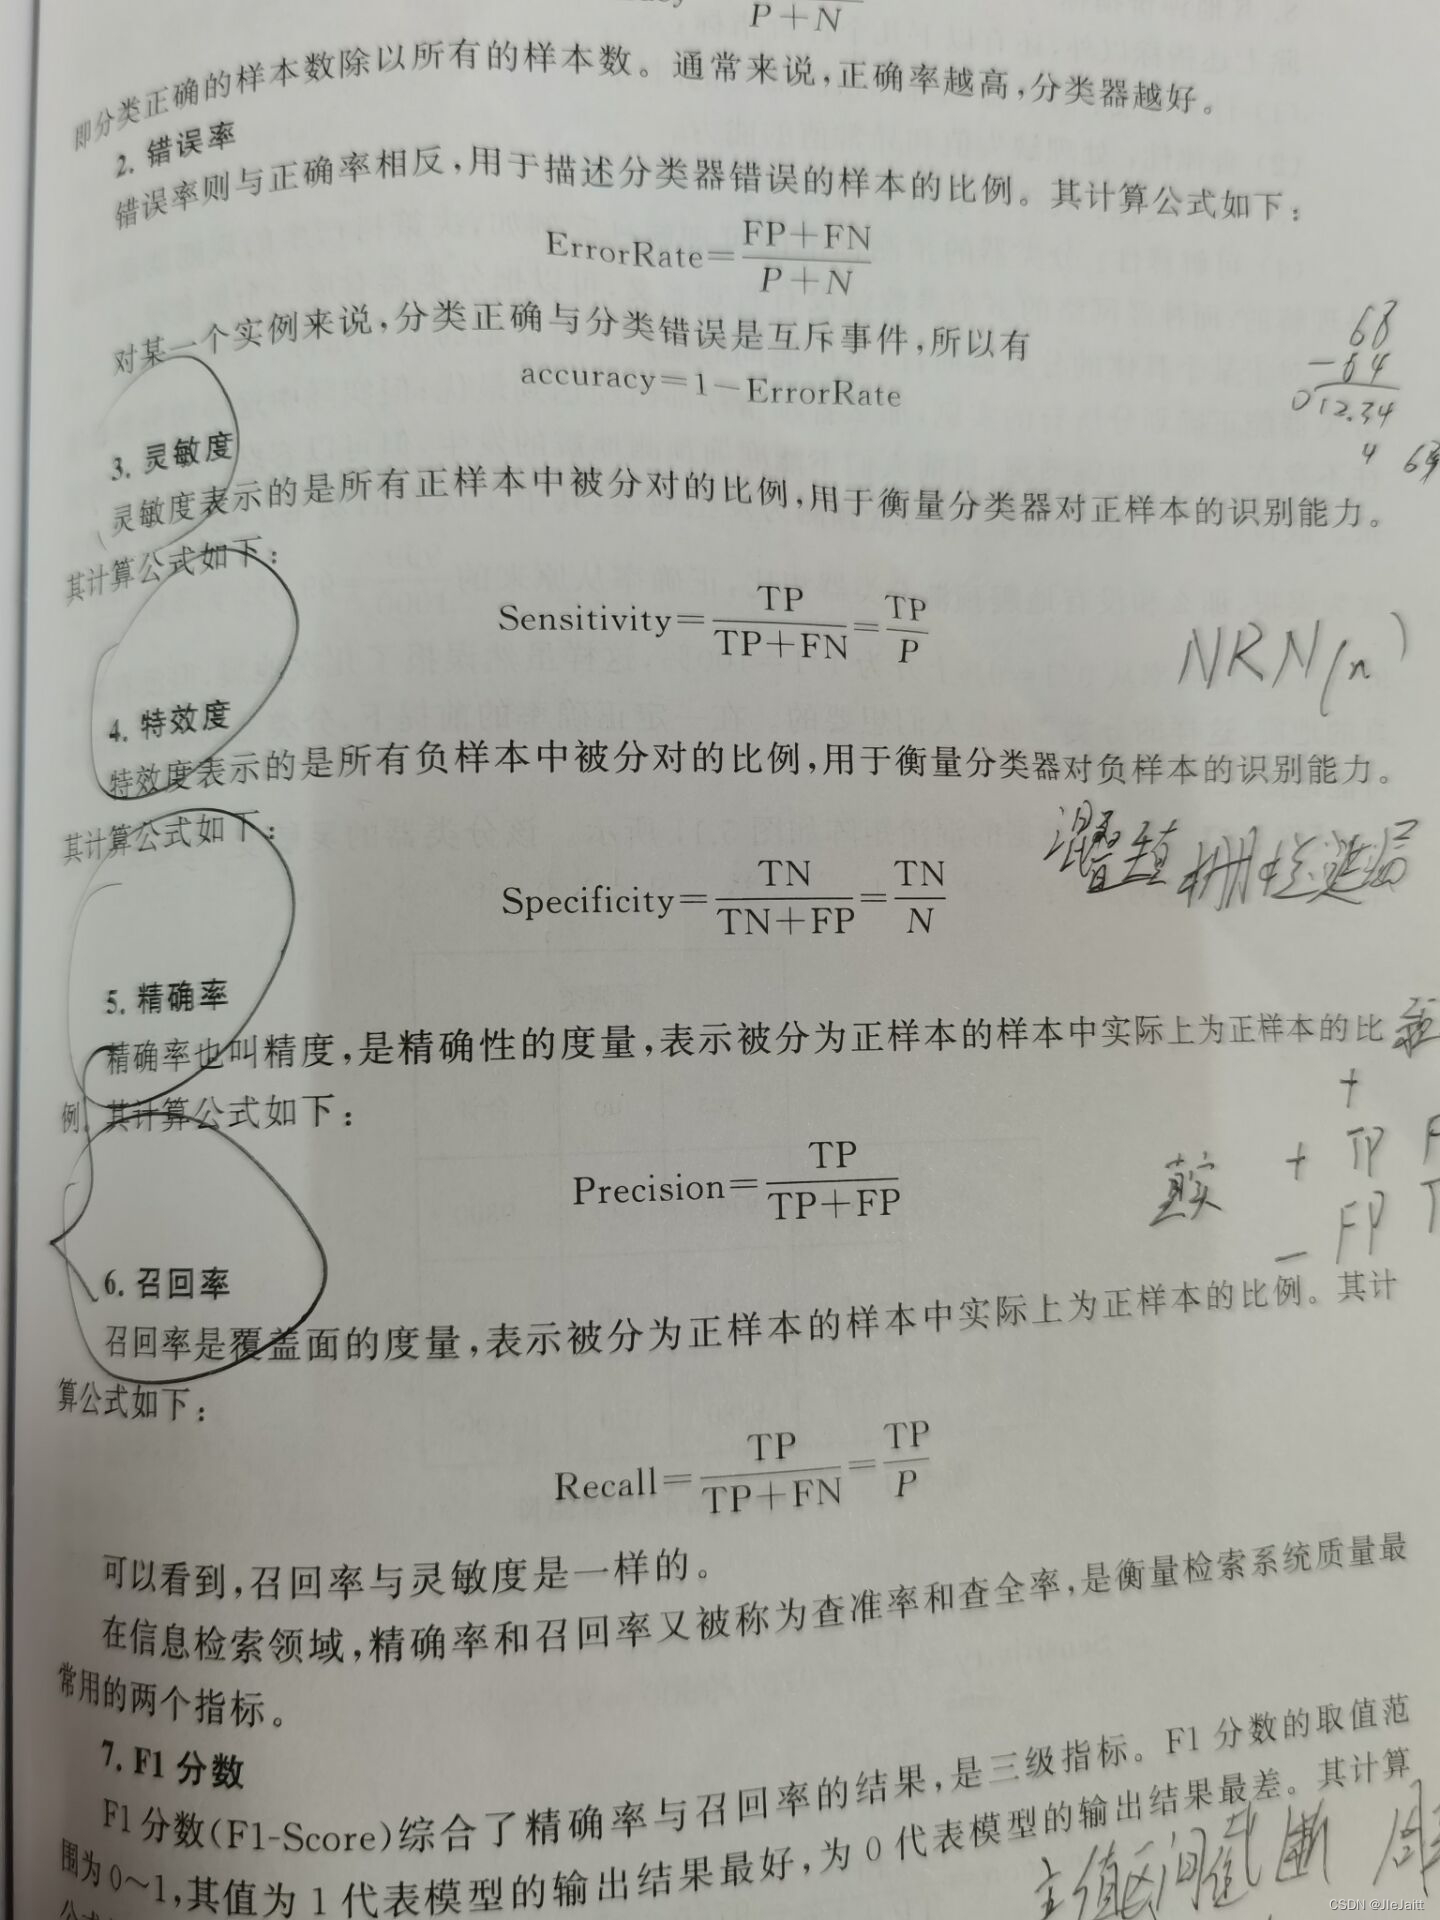 P+N
即分类正确的样本数除以所有的样本数。通常来说,正确率越高,分类器越好。
2. 错误率
错误率则与正确率相反,用于描述分类器错误的样本的比例。其计算公式如下:
ErrorRate=
FP+FN
P+N
对某一个实例来说,分类正确与分类错误是互斥事件,所以有
accuracy=1-ErrorRate
68
-64
012.34
4
3. 灵敏度
灵敏度表示的是所有正样本中被分对的比例,用于衡量分类器对正样本的识别能力。
其计算公式如下:
Sensitivity=
TP
TP+FN
=
TP
P
NRN(n)
4. 特效度
特效度表示的是所有负样本中被分对的比例,用于衡量分类器对负样本的识别能力。
其计算公式如下:
Specificity=
TN
TN+FP
=
TN
N
5. 精确率
精确率也叫精度,是精确性的度量,表示被分为正样本的样本中实际上为正样本的比
例。其计算公式如下:
Precision=
TP
TP+FP
+
真实 + TP
- FP
6. 召回率
召回率是覆盖面的度量,表示被分为正样本的样本中实际上为正样本的比例。其计
算公式如下:
Recall=
TP
TP+FN
=
TP
P
可以看到,召回率与灵敏度是一样的。
在信息检索领域,精确率和召回率又被称为查准率和查全率,是衡量检索系统质量最
常用的两个指标。
7. F1 分数
F1 分数(F1-Score)综合了精确率与召回率的结果,是三级指标。F1 分数的取值范
围为 0～1,其值为 1 代表模型的输出结果最好,为 0 代表模型的输出结果最差。其计算
主值区间
CSDN @JIeJaitt